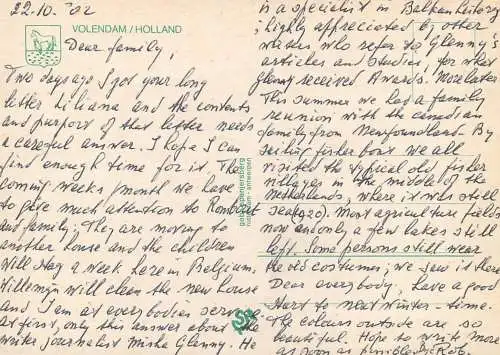 22.10. '02
VOLENDAM / HOLLAND
Dear family,
Two days ago I got your long
letter Liliana and the contents
and purport of that letter needs
a careful answer. I hope I can
find enough time for it. The
coming weeks/month we have
to give much attention to Rombout
and family; They are moving to
another house and the children
will stay a week here in Belgium.
Willemijn will clean the new house
and I am at everybodies service
At first, only this answer about the
writer/journalist Misha Glenny. He
is a specialist in Balkan history
; highly appreciated by other
writers who refer to Glenny's
articles and studies, for what
Glenny received Awards. More later
This summer we had a family
reunion with the canadian
family from Newfoundland. By
sailing fisher boat we all
visited the typical old fisher
villages in the middle of the
Netherlands, where it was still
sea (1920). Most agriculture fields
now and only a few lakes still
left. Some persons still wear
the old costumes; we saw it there
Dear everybody, have a good
start to next winter-time.
The colours outside are so
beautiful. Hope to write more
as soon as possible Rob.